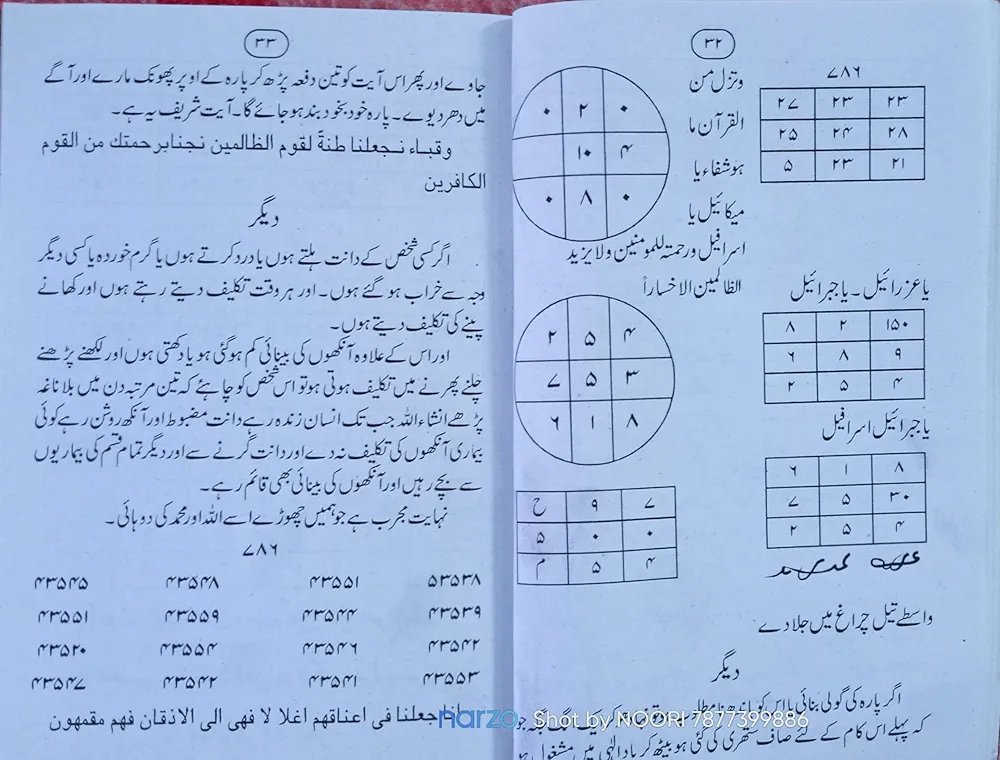 ۳۲
۷۸۶
۲۷ ۲۳ ۲۳
۲۵ ۲۴ ۲۸
۵ ۲۳ ۲۱
وتزل من
القرآن ما
ہو شفاء یا
میکائیل یا
اسرافیل ورحمتہ للمومنین ولا یزید
الظالمین الا خساراً
۰ ۲ ۰
۱۰ ۴
۰ ۸ ۰
یا عزرائیل۔ یا جبرائیل
۸ ۲ ۱۵۰
۶ ۸ ۹
۲ ۵ ۴
۲ ۵ ۴
۷ ۵ ۳
۶ ۱ ۸
یا جبرائیل اسرافیل
۶ ۱ ۸
۷ ۵ ۳۰
۲ ۵ ۴
ح ۹ ۷
۵ ۰ ۰
م ۵ ۴
واسطے تیل چراغ میں جلا دے
دیگر
اگر پارہ کی گولی بنائی یا اس کو باندھنا
کہ پہلے اس کام کے لئے صاف ستھری کی گئی ہو بیٹھ کر یاد الٰہی میں مشغول ہو
۳۳
جاوے اور پھر اس آیت کو تین دفعہ پڑھ کر پارہ کے اوپر پھونک مارے اور آگے
میں دھر دیوے۔ پارہ خود بخود بند ہو جائے گا۔ آیت شریف یہ ہے۔
وقباء نجعلنا طنةً لقوم الظالمين نجنابرحمتك من القوم
الكافرين
دیگر
اگر کسی شخص کے دانت ہلتے ہوں یا درد کرتے ہوں یا گرم خوردہ یا کسی دیگر
وجہ سے خراب ہو گئے ہوں۔ اور ہر وقت تکلیف دیتے رہتے ہوں اور کھانے
پینے کی تکلیف دیتے ہوں۔
اور اس کے علاوہ آنکھوں کی بینائی کم ہو گئی ہو یا دکھتی ہوں اور لکھنے پڑھنے
چلنے پھرنے میں تکلیف ہوتی ہو تو اس شخص کو چاہئے کہ تین مرتبہ دن میں بلا ناغہ
پڑھے انشاء اللہ جب تک انسان زندہ رہے دانت مضبوط اور آنکھ روشن رہے کوئی
بیماری آنکھوں کی تکلیف نہ دے اور دانت گرنے سے اور دیگر تمام قسم کی بیماریوں
سے بچے رہیں اور آنکھوں کی بینائی بھی قائم رہے۔
نہایت مجرب ہے جو ہمیں چھوڑے اسے اللہ اور محمد کی دوہائی۔
۷۸۶
۴۳۵۴۵ ۴۳۵۴۸ ۴۳۵۵۱ ۵۳۵۳۸
۴۳۵۵۱ ۴۳۵۵۹ ۴۳۵۴۴ ۴۳۵۳۹
۴۳۵۲۰ ۴۳۵۵۴ ۴۳۵۴۶ ۴۳۵۴۲
۴۳۵۴۷ ۴۳۵۴۲ ۴۳۵۴۱ ۴۳۵۵۳
جعلنا فى اعناقهم اغلا لا فهى الى الاذقان فهم مقمهون
narzo Shot by NOORI 7877399886